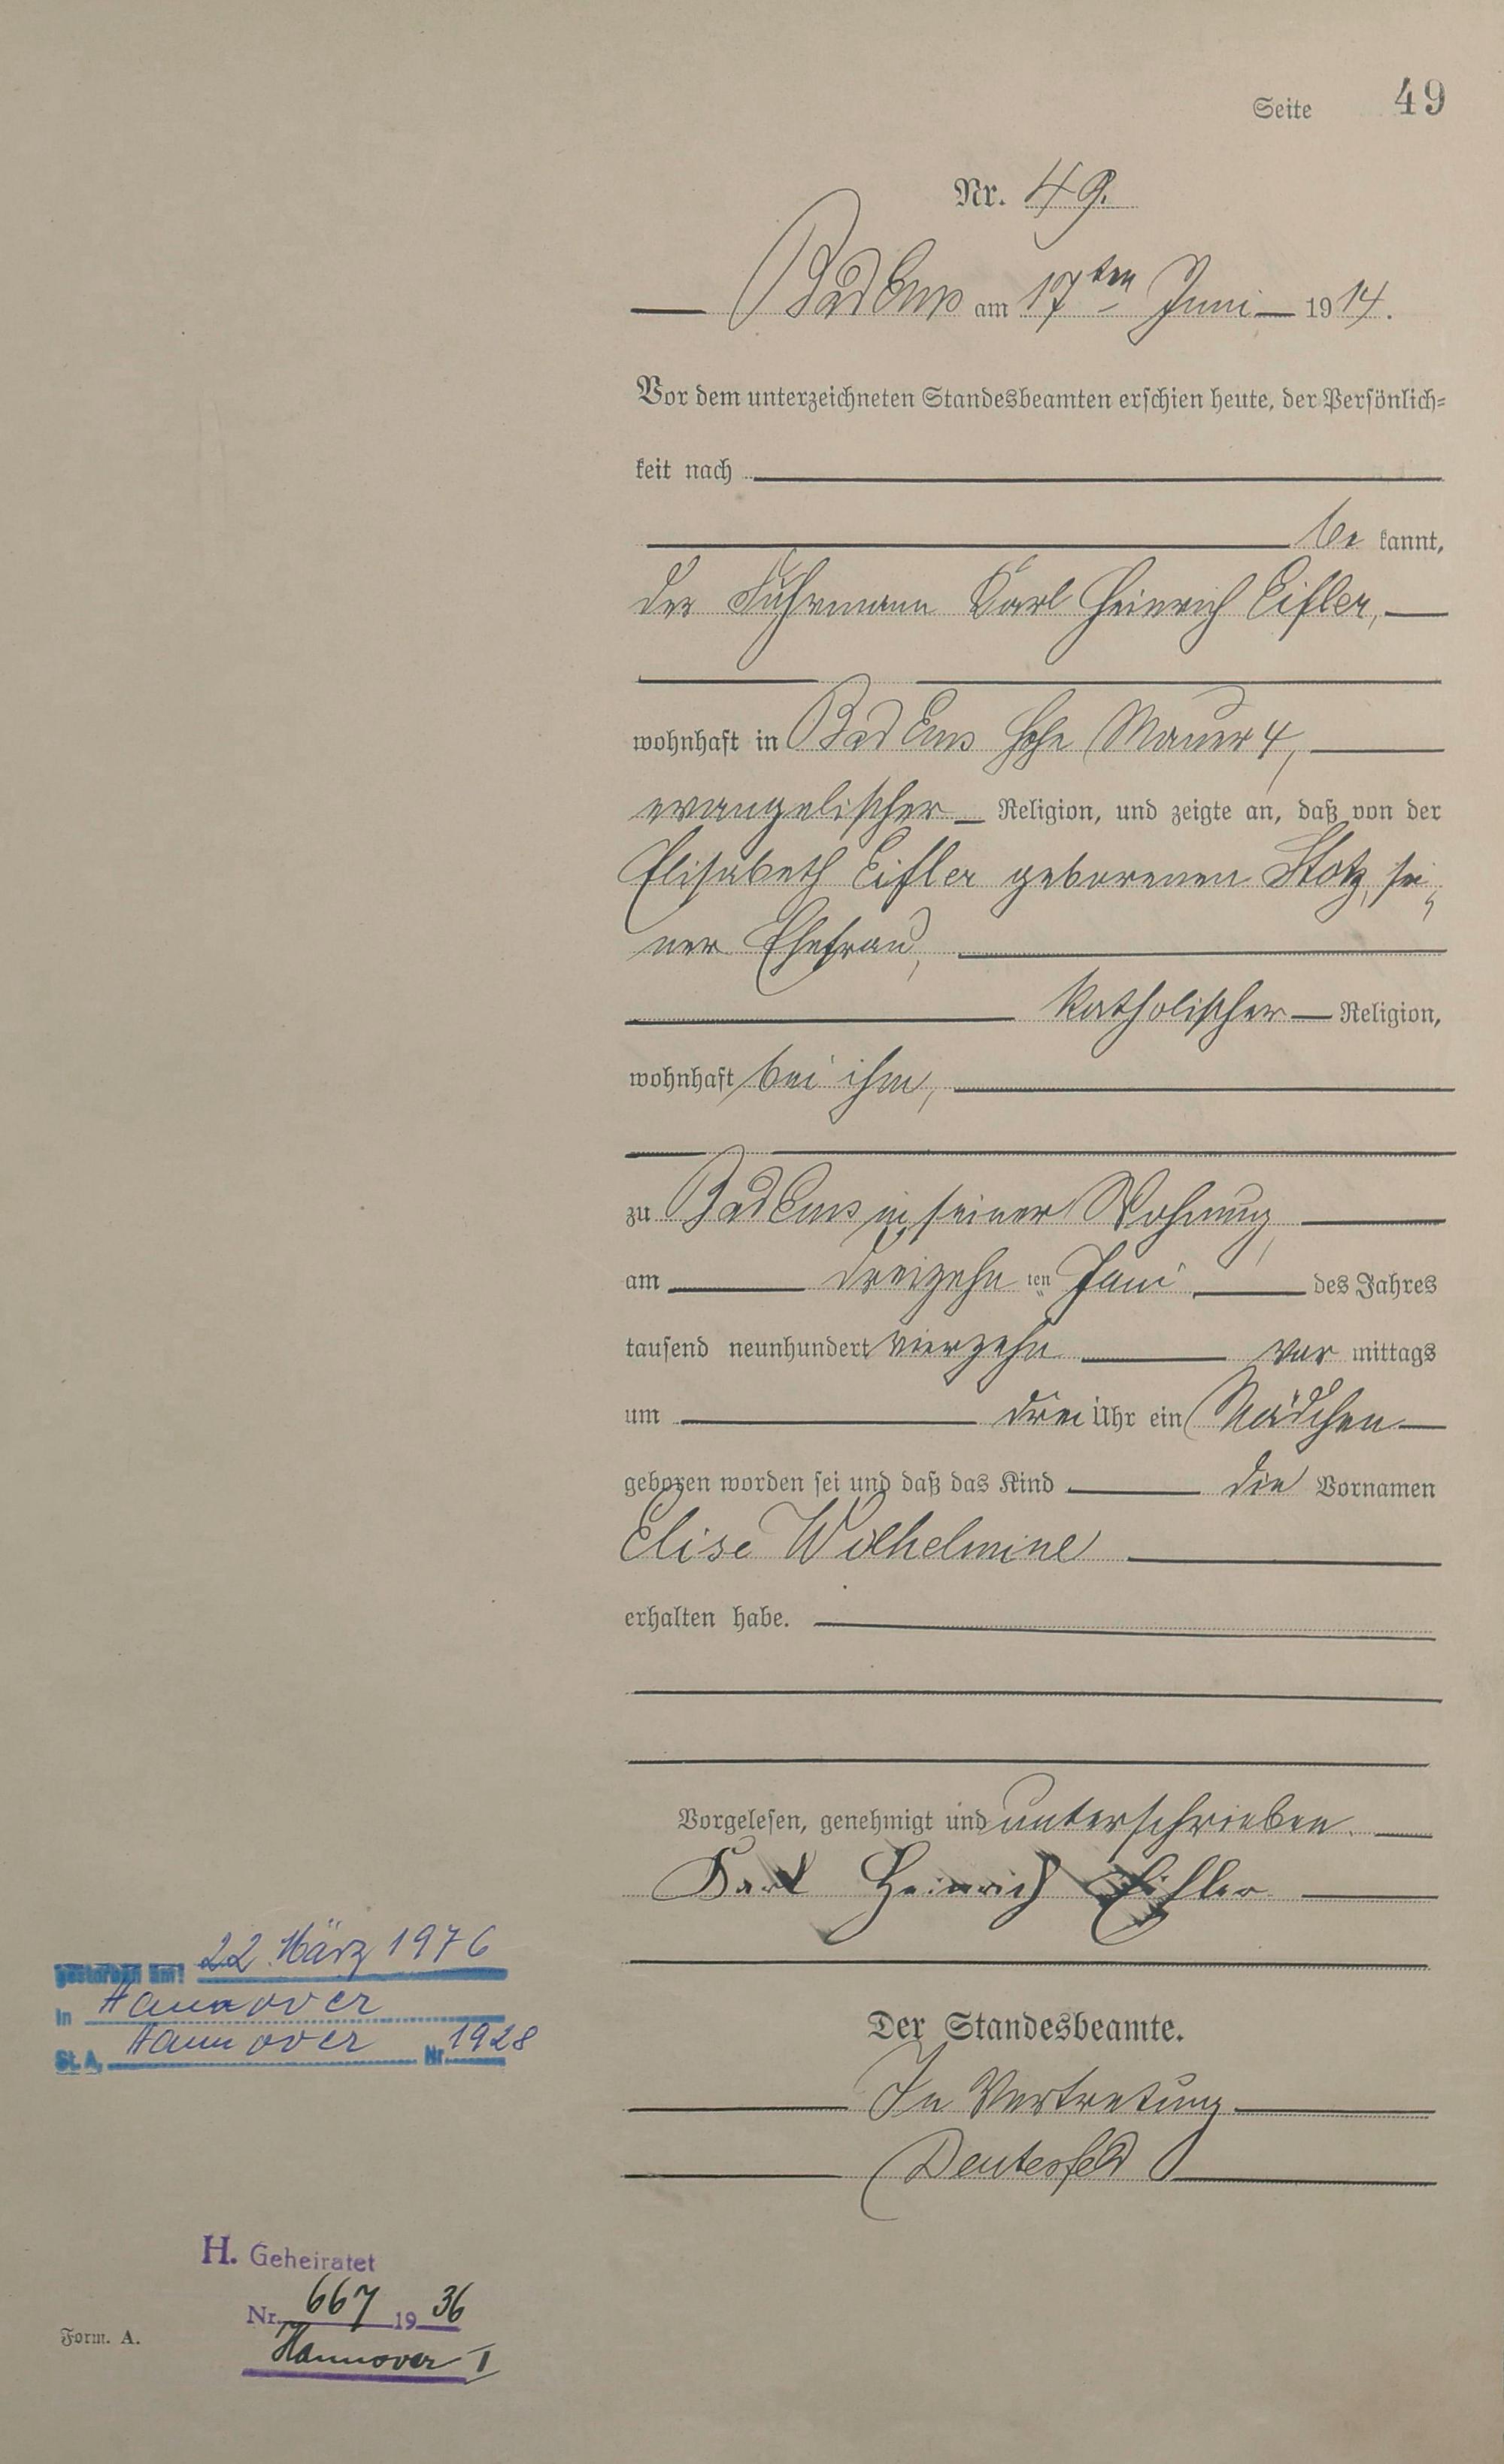 Seite 49
Nr. 49.
Bad Ems am 17ten Juni 1914.
Vor dem unterzeichneten Standesbeamten erschien heute, der Persönlich=
keit nach
be kannt,
der Fuhrmann Karl Heinrich Eifler,
wohnhaft in Bad Ems Hohe Mauer 4,
evangelischer Religion, und zeigte an, daß von der
Elisabeth Eifler geborenen Stotz, sei=
ner Ehefrau,
katholischer Religion,
wohnhaft bei ihm,
zu Bad Ems in seiner Wohnung,
am dreizehn ten Juni des Jahres
tausend neunhundert vierzehn vor mittags
um drei Uhr ein Mädchen
geboren worden sei und daß das Kind die Vornamen
Elise Wilhelmine
erhalten habe.
Vorgelesen, genehmigt und unterschrieben.
Karl Heinrich Eifler
Der Standesbeamte.
In Vertretung
gestorben am: 22. März 1976
in Hannover
St. A. Hannover Nr. 1928
H. Geheiratet
Nr. 667 1936
Hannover I
Form. A.